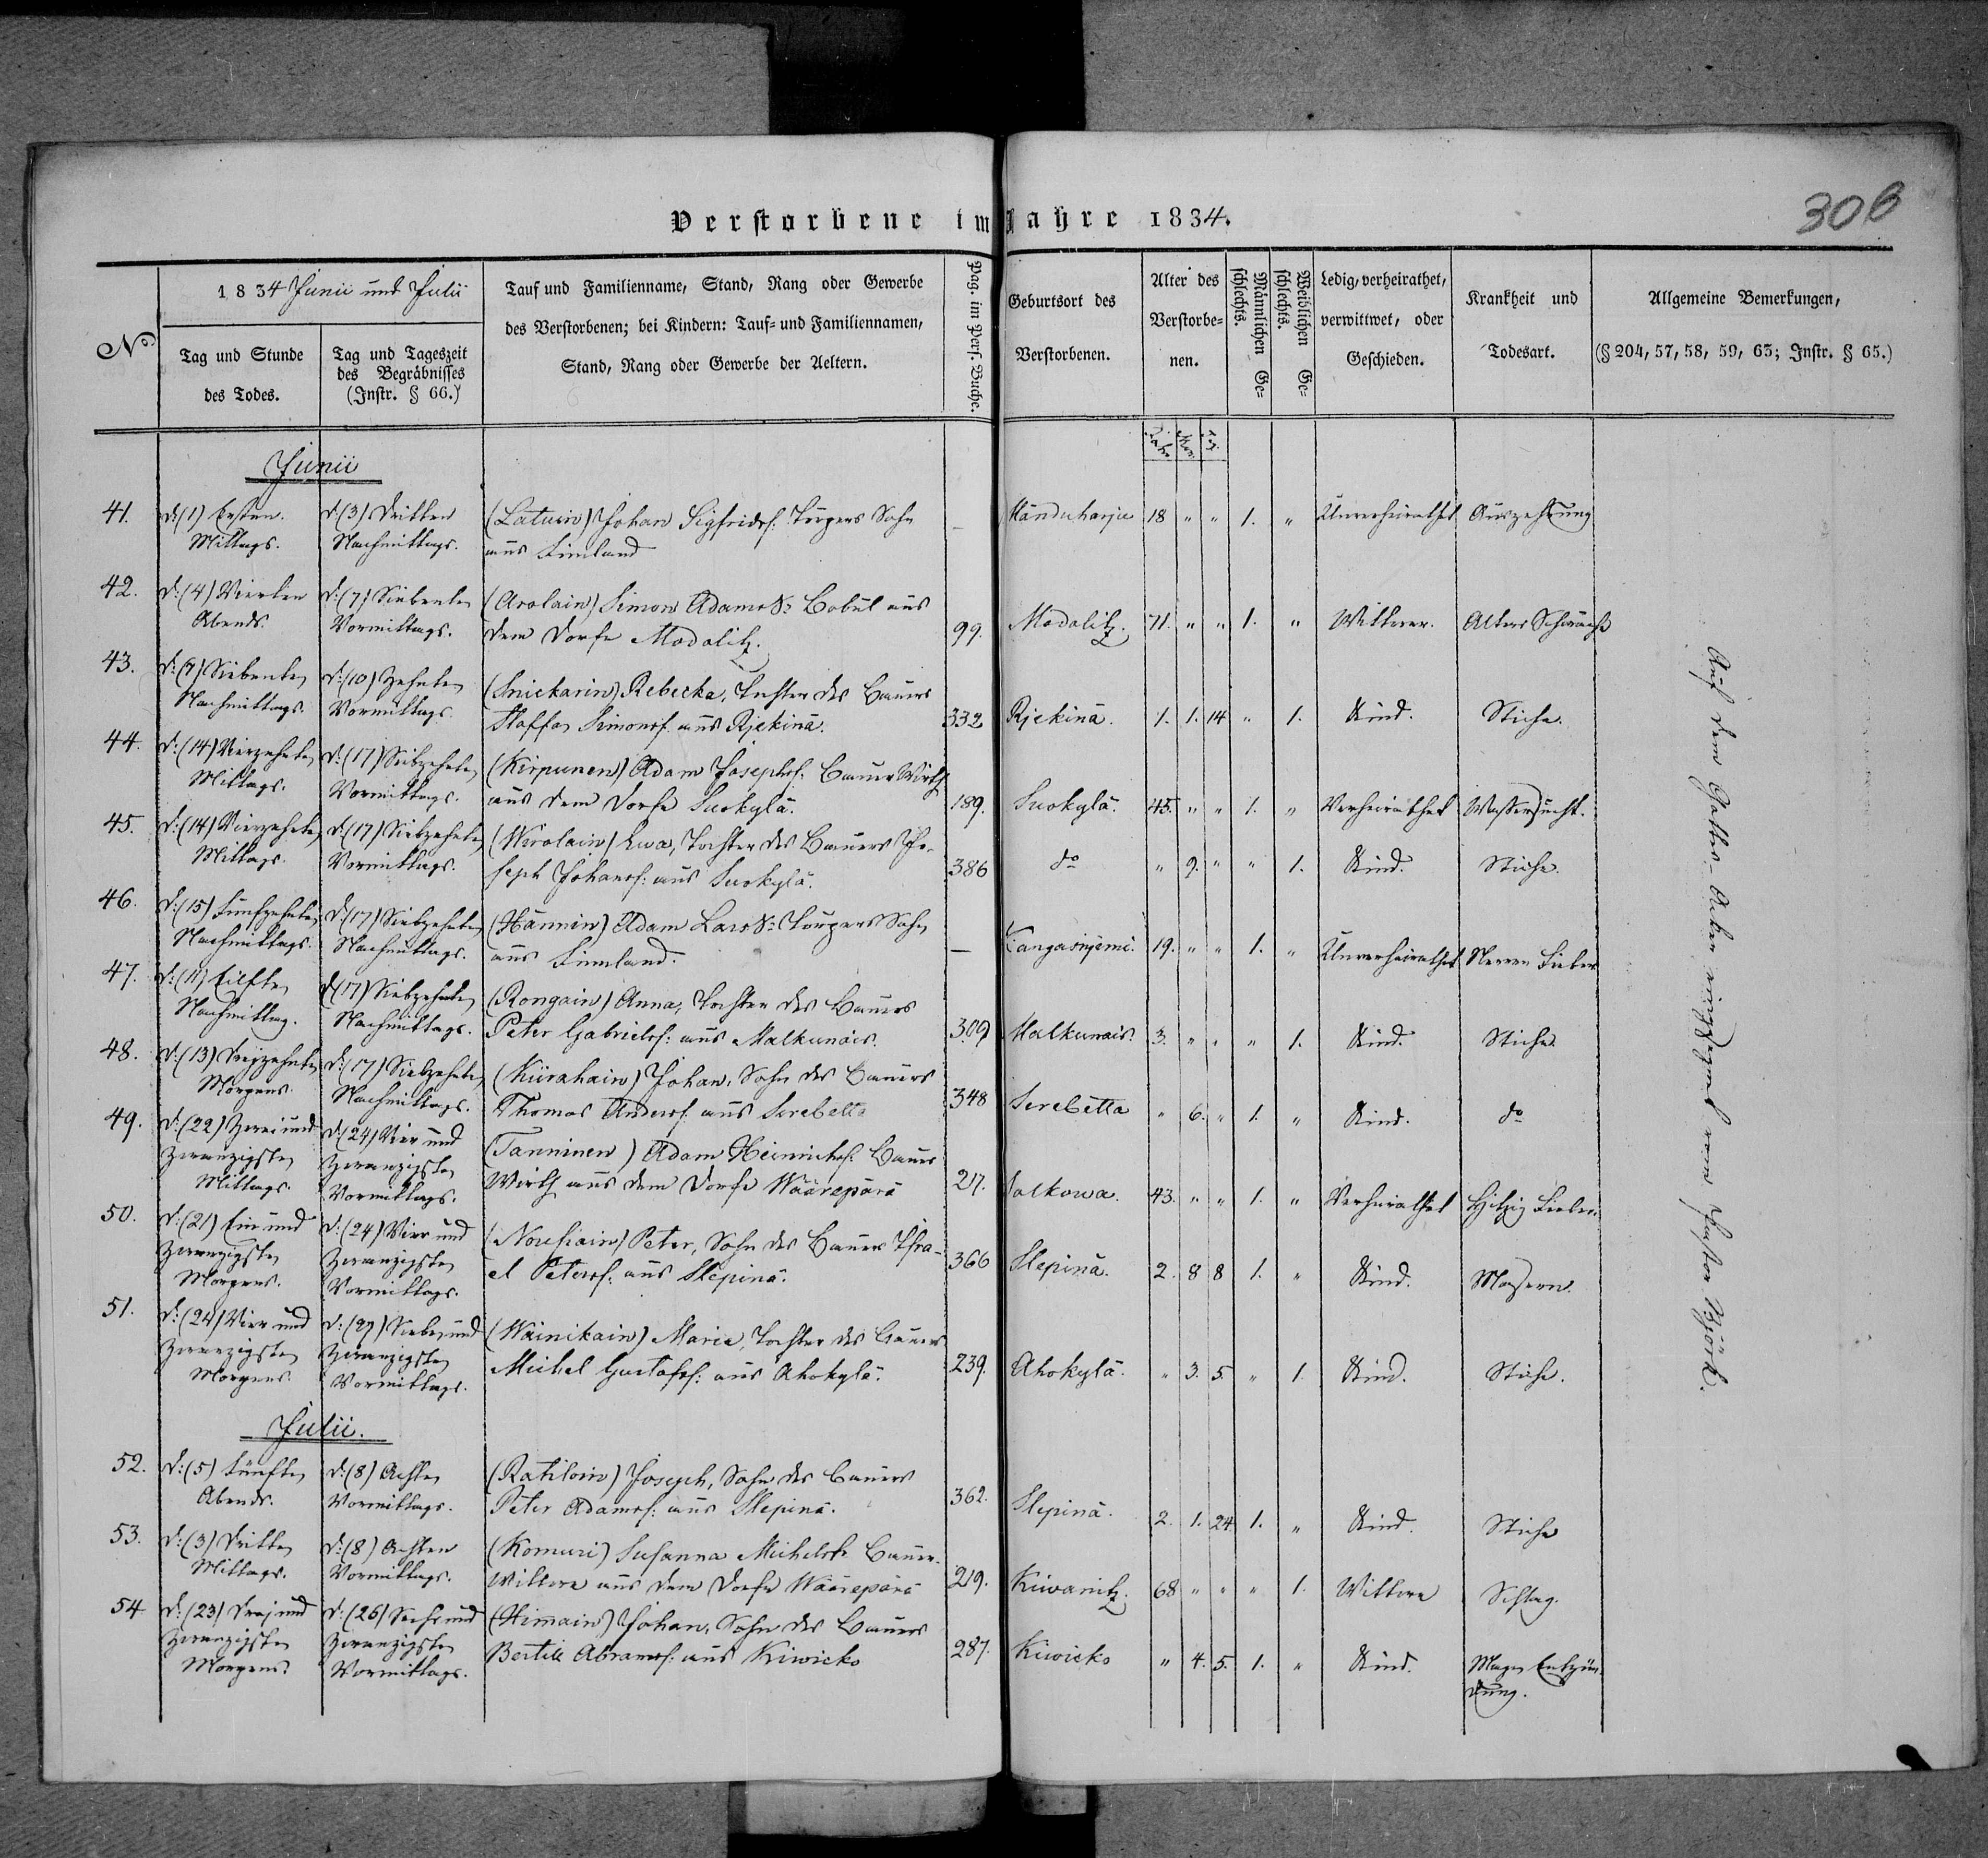 Verstorbene im Jahre 1834.
306
No
1834 Junii und Julii
Tag und Stunde
des Todes.
Tag und Tageszeit
des Begräbnisses
(Instr. § 66.)
Tauf und Familienname, Stand, Rang oder Gewerbe
des Verstorbenen; bei Kindern: Tauf- und Familiennamen,
Stand, Rang oder Gewerbe der Aeltern.
Pag. im Pers. Buche.
Geburtsort des
Verstorbenen.
Alter des
Verstorbe-
nen.
Männlichen Ge-
schlechts.
Weiblichen Ge-
schlechts.
Ledig, verheirathet,
verwittwet, oder
Geschieden.
Krankheit und
Todesart.
Allgemeine Bemerkungen,
(§ 204, 57, 58, 59, 63; Instr. § 65.)
Junii
41. d: (1) Ersten d: (3) Dritten (Latuin) Johan Sigfridss: Sohn — 18 " " 1. " Unverheirathet Auszehrung
Mittags. Nachmittags. aus Finnland
42. d: (4) Vierten d: (7) Siebenten (Arolain) Simon Adamss: Bobül aus
Abends. Vormittags. dem Dorfe Modolitz. 99. Modolitz. 71. " " 1. " Wittwer. Alters Schwäche
43. d: (7) Siebenten d: (10) Zehnten (Snickarin) Rebecka, Tochter des Bauers
Nachmittags. Vormittags. Staffan Simonss: aus Rjekinä. 332 Rjekinä. 1. 1. 14 " 1. Kind. Stiche.
44. d: (14) Vierzehnten d: (17) Siebzehnten (Kirpunen) Adam Josephss: Bauer Wirth
Mittags. Vormittags. aus dem Dorfe Suokylä. 189. Suokylä. 45. " " 1. " Verheirathet Wassersucht.
45. d: (14) Vierzehnten d: (17) Siebzehnten (Wirolain) Ewa, Tochter des Bauers Jo-
Mittags. Vormittags. seph Johanss: aus Suokylä. 386 do " 9. " " 1. Kind. Stiche.
46. d: (15) Fünfzehnten d: (17) Siebzehnten (Hännin) Adam Larss: Sohn
Nachmittags. Nachmittags. aus Finnland. — Kangasnjemi. 19. " " 1. " Unverheirathet Nerven Fieber
47. d: (11) Eilften d: (17) Siebzehnten (Rongain) Anna, Tochter des Bauers
Nachmittag. Nachmittags. Peter Gabrielss: aus Malkunais. 309 Malkunais. 3. " " " 1. Kind. Stiche
48. d: (13) Dreyzehnten d: (17) Siebzehnten (Kiirahain) Johan, Sohn des Bauers
Morgens. Nachmittags. Thomas Anderss: aus Serebetta 348 Serebetta " 6. " 1. " Kind. do
49. d: (22) Zwei und d: (24) Vier und (Tanninen) Adam Heinrichss: Bauer
zwanzigsten zwanzigsten Wirth aus dem Dorfe Wäärepärä 217. 43. " " 1. " Verheirathet Hitzig Fieber.
Mittags. Vormittags.
50. d: (21) Ein und d: (24) Vier und (Nousiain) Peter, Sohn des Bauers Isra-
zwanzigsten zwanzigsten el Peterss: aus Slepinä. 366 Slepinä. 2. 8 8 1. " Kind. Masern.
Morgens. Vormittags.
51. d: (24) Vier und d: (27) Sieben und (Wäinikain) Maria, Tochter des Bauers
zwanzigsten zwanzigsten Michel Gustafss: aus Ahokylä. 239. Ahokylä. " 3. 5. " 1. Kind. Stiche.
Morgens. Vormittags.
Julii.
52. d: (5) Fünften d: (8) Achten (Ratiloin) Joseph, Sohn des Bauers
Abends. Vormittags. Peter Adamss: aus Slepinä. 362. Slepinä. 2. 1. 24 1. " Kind. Stiche
53. d: (3) Dritten d: (8) Achten (Komuri) Susanna Michelsdr. Bauer-
Mittags. Vormittags. Wittwe aus dem Dorfe Wäärepärä 219. Kiwanitz. 68 " " " 1. Wittwe Schlag.
54 d: (23) Drei und d: (26) Sechs und (Himain) Johan, Sohn des Bauers
zwanzigsten zwanzigsten Bertill Abramss: aus Kiwicko 287. Kiwicko " 4. 5. 1. " Kind. Magen Entzün-
Morgens. Vormittags. dung.
Auf dem Gottes-Acker eingesegnet vom Pastor Björk.